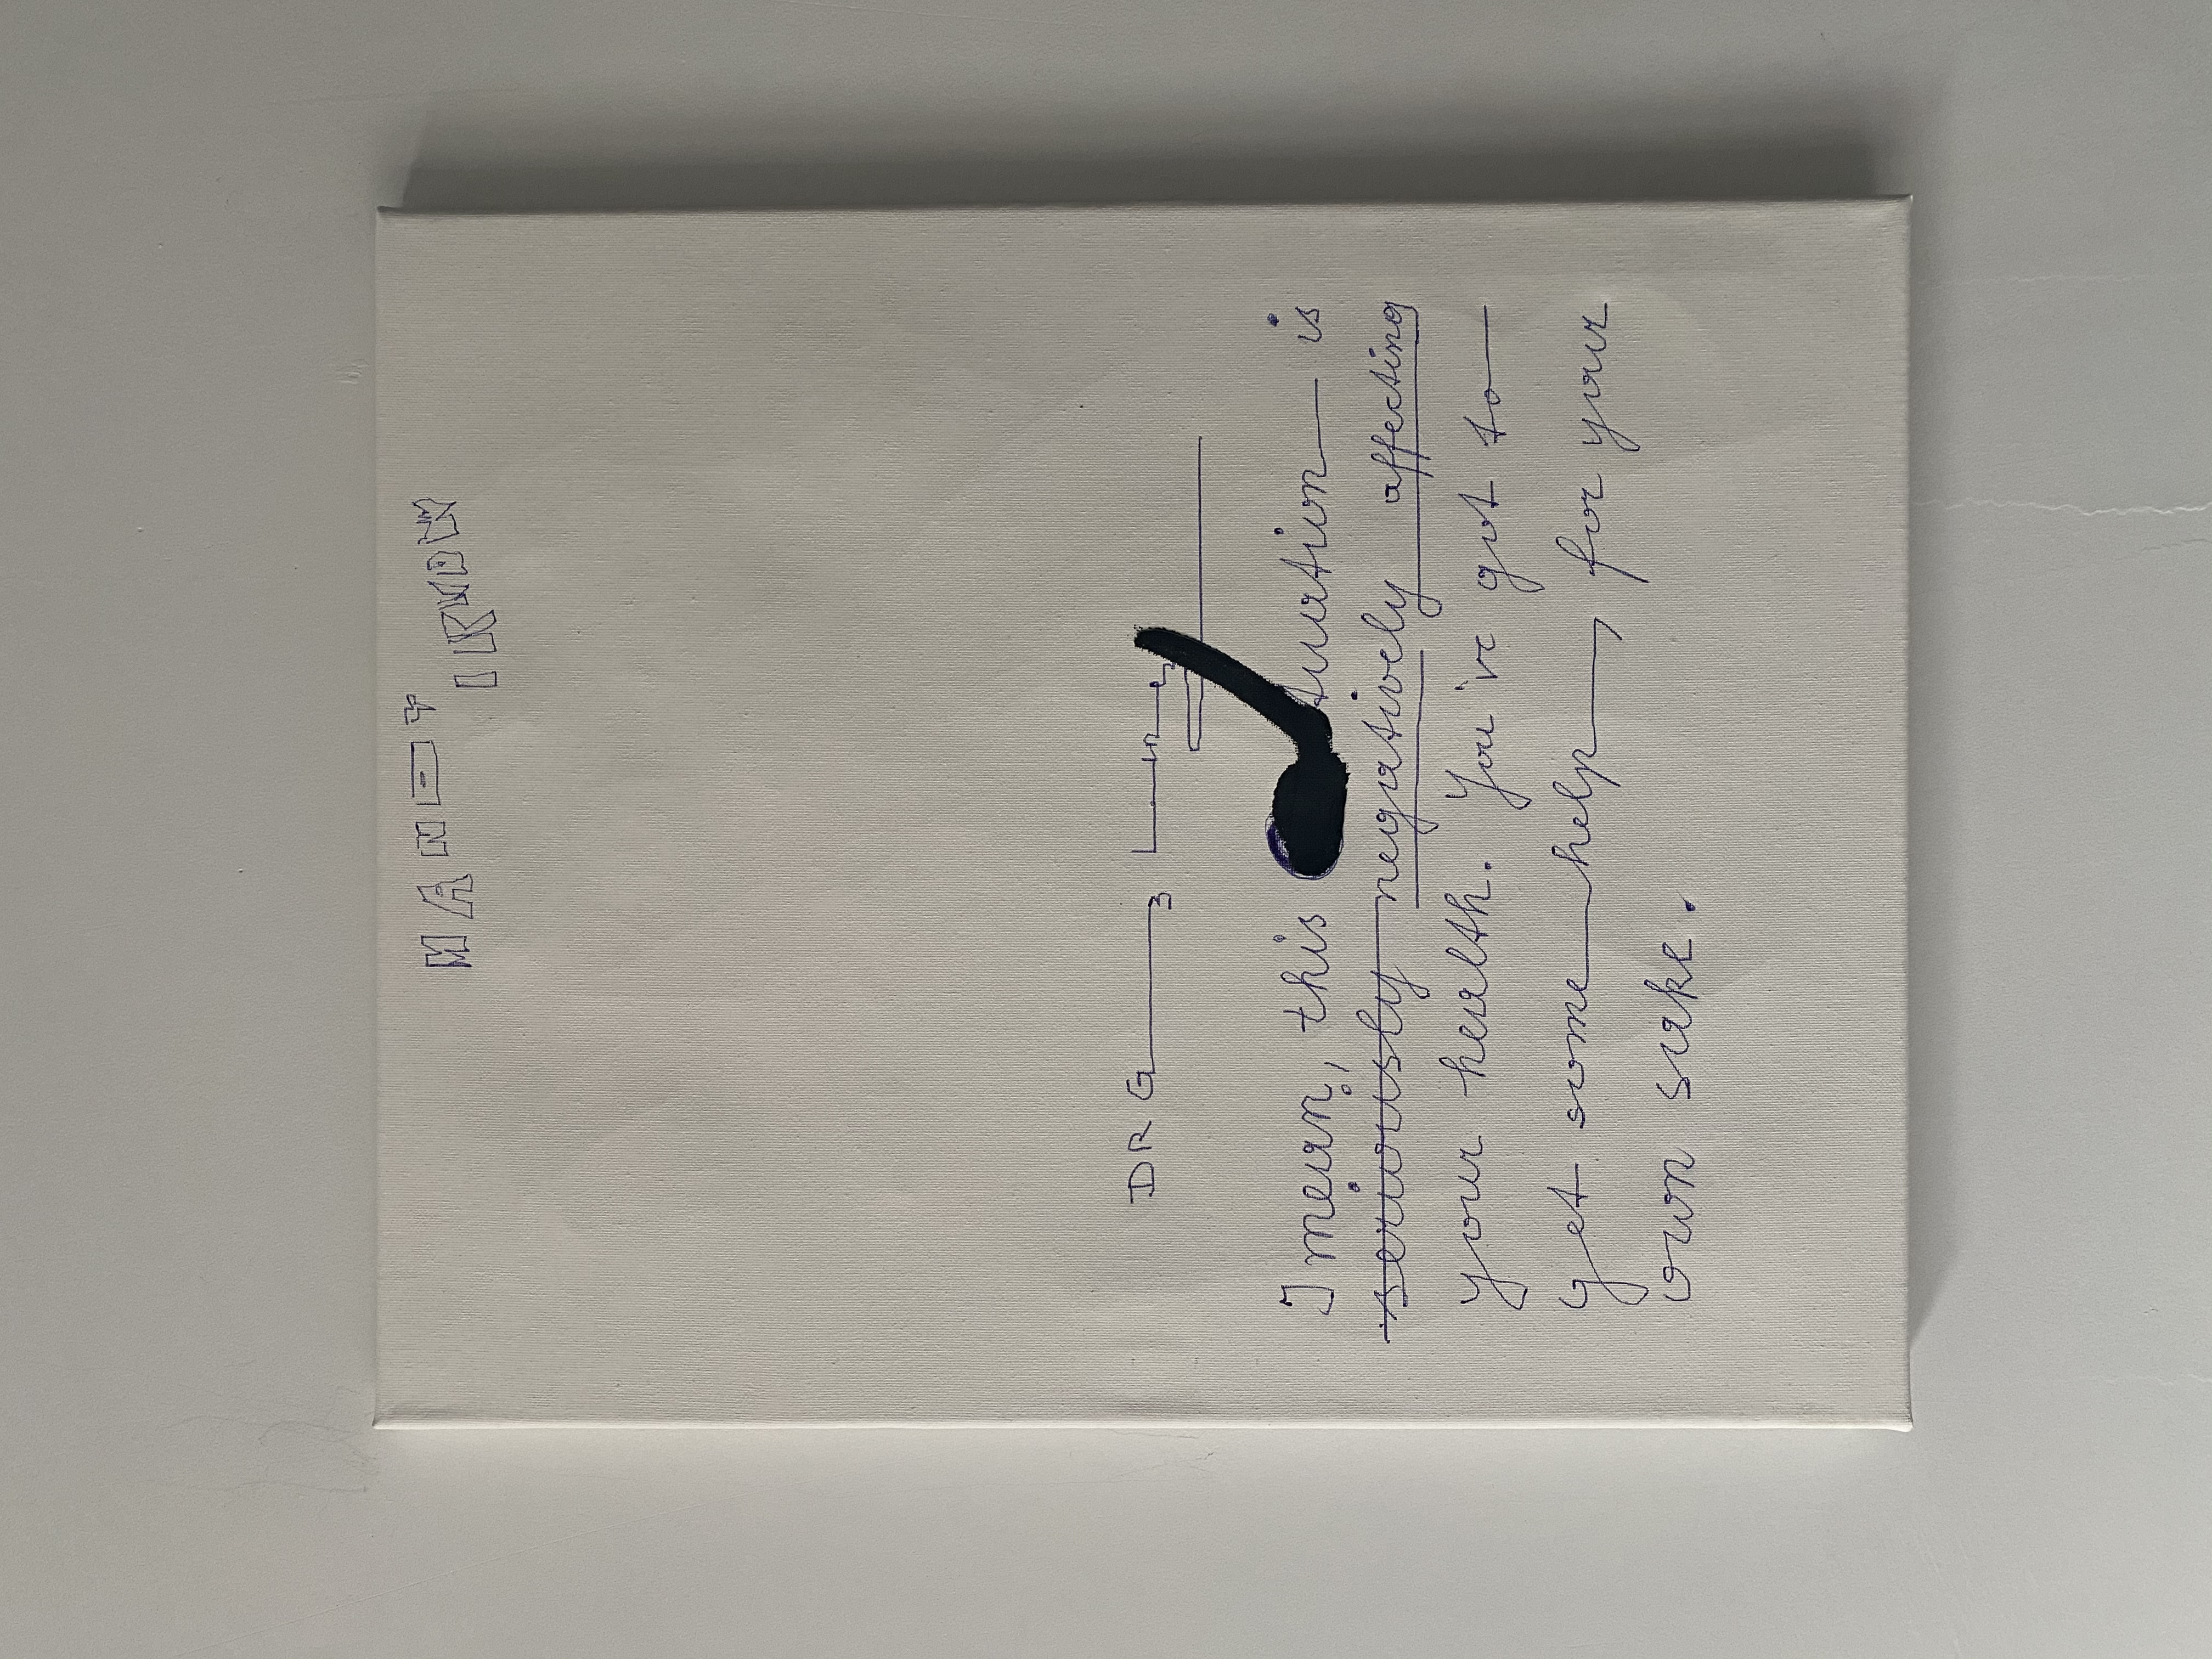 MAN
I KNOW
DRG
I mean, this is
seriously negatively affecting
your health. You've got to
get some help, for your
own sake.